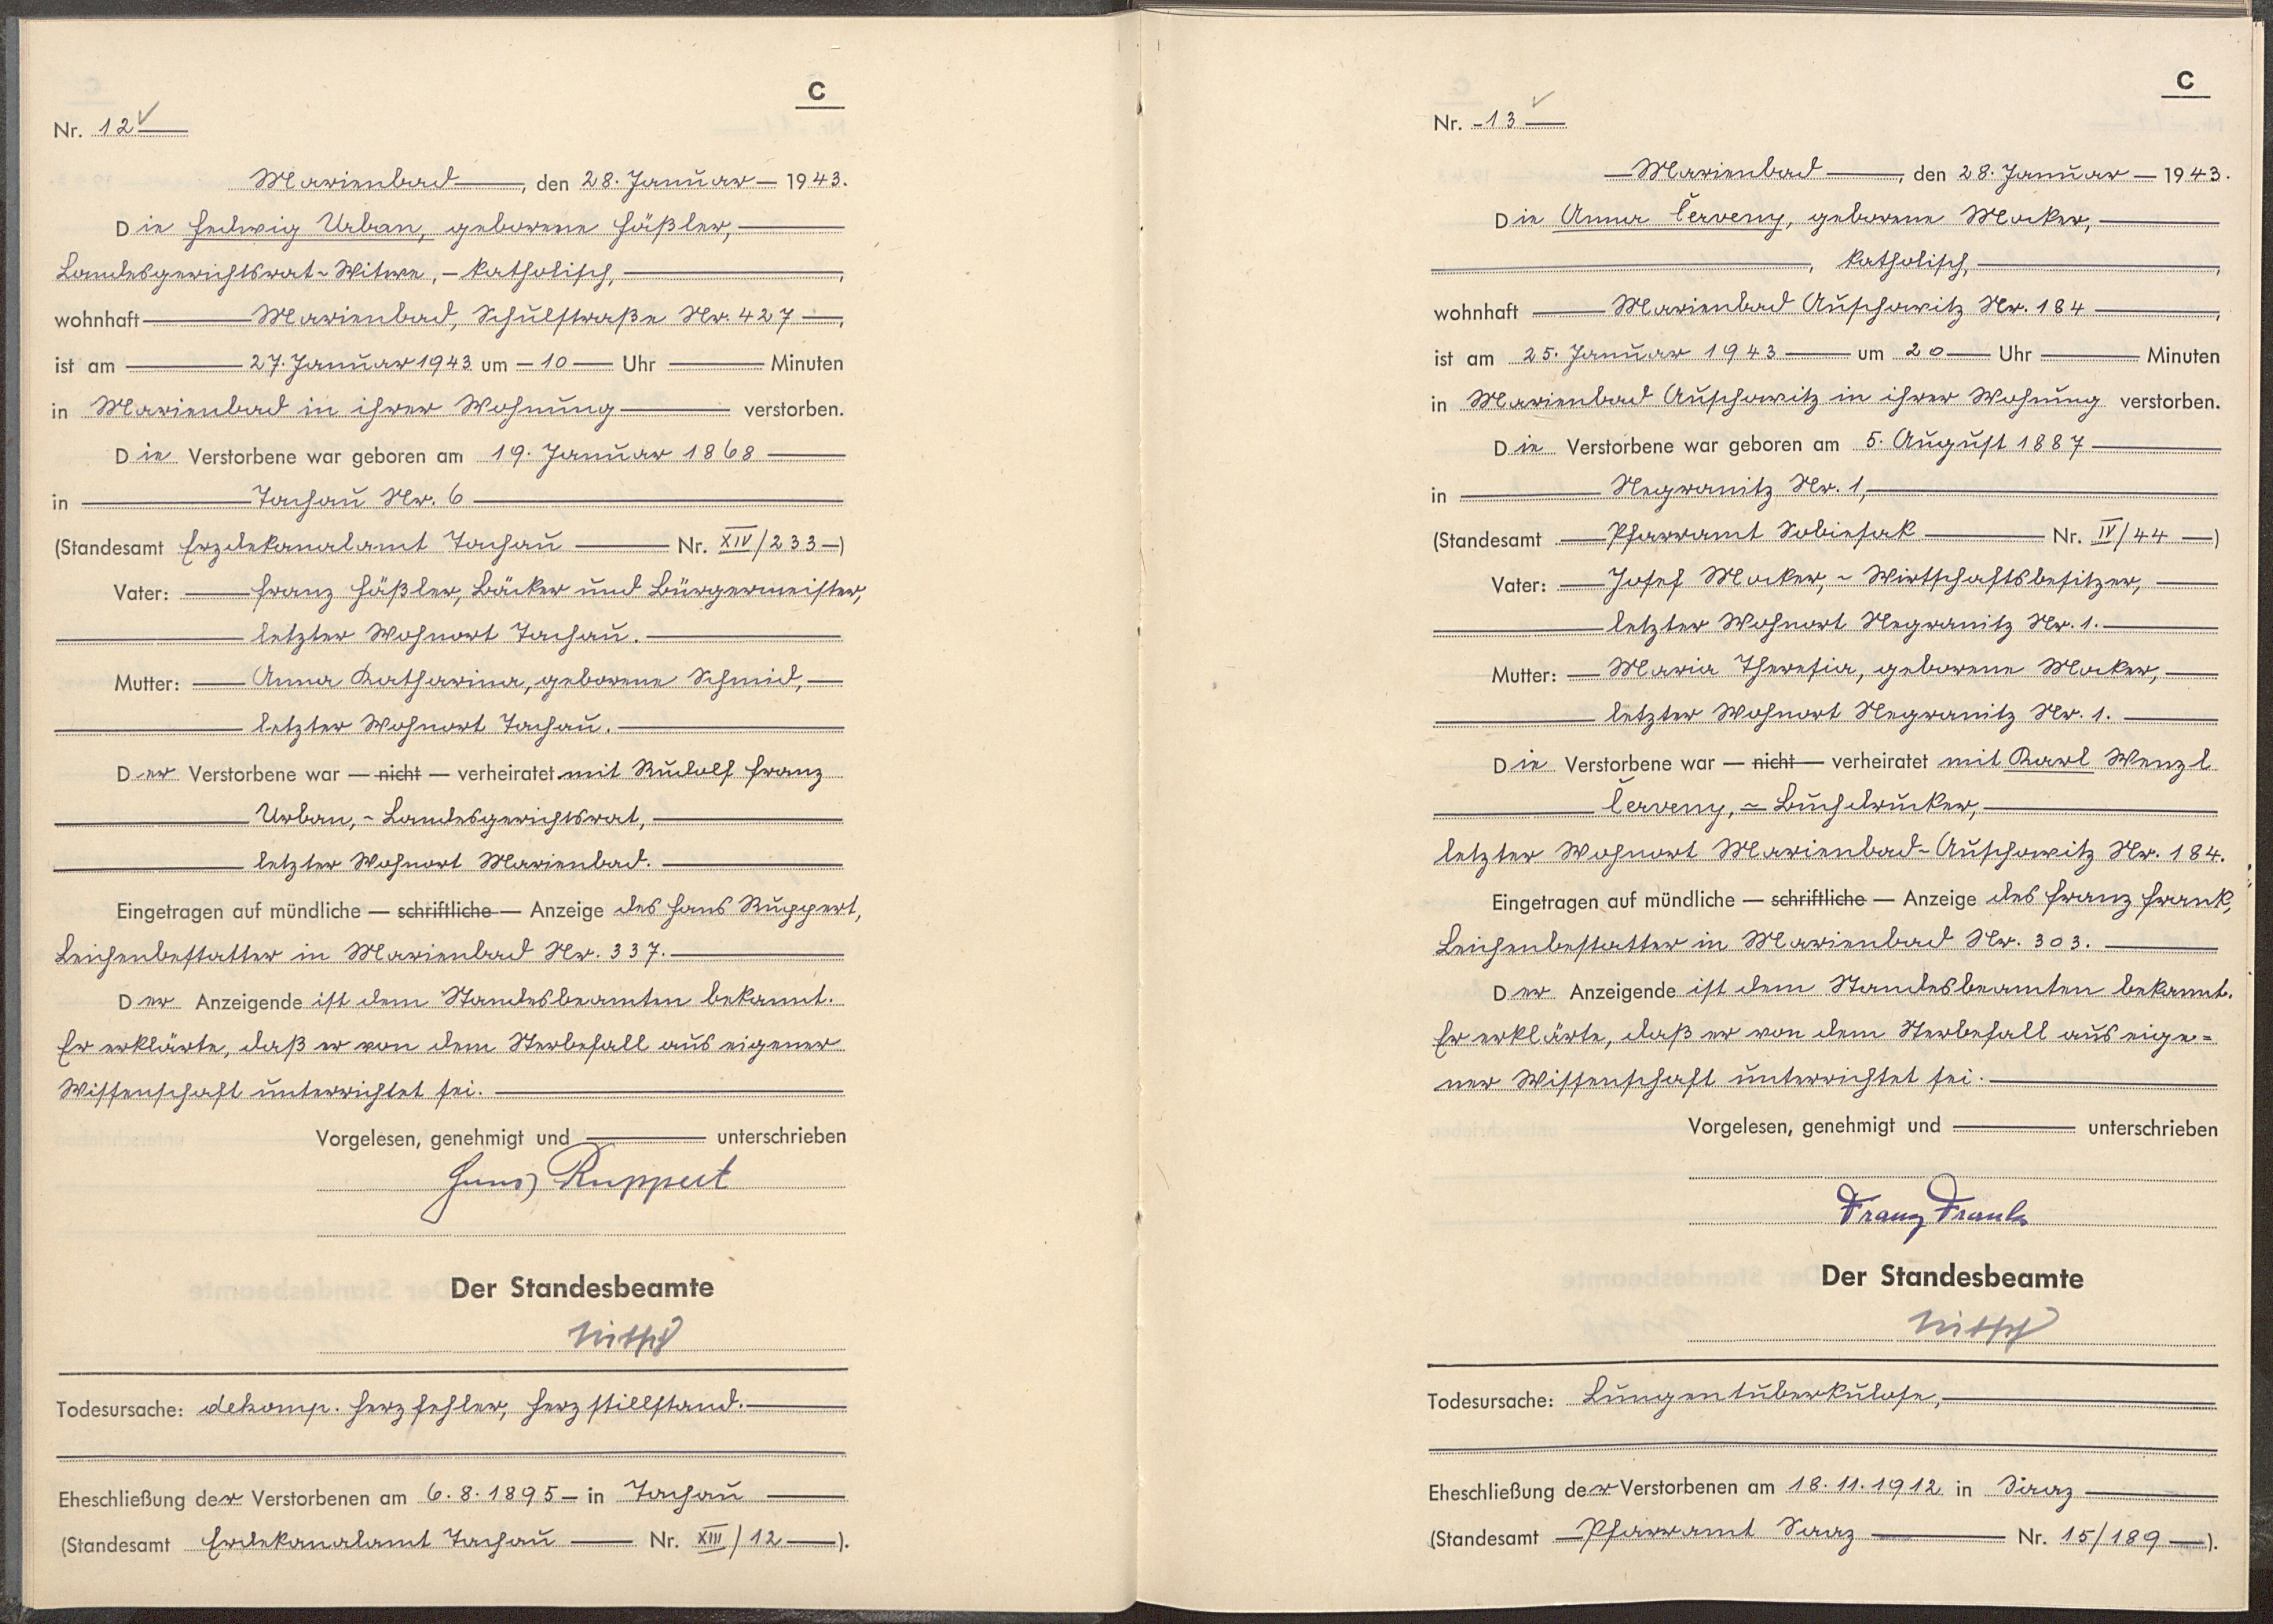 C
Nr. 12
Marienbad, den 28. Januar 1943.
Die Hedwig Urban, geborene Häßler,
Landesgerichtsrat-Witwe, - katholisch,
wohnhaft Marienbad, Schulstraße Nr. 427,
ist am 27. Januar 1943 um 10 Uhr Minuten
in Marienbad in ihrer Wohnung verstorben.
Die Verstorbene war geboren am 19. Januar 1868
in Tachau Nr. 6
(Standesamt Erzdekanalamt Tachau Nr. XIV/233)
Vater: Franz Häßler, Bäcker und Bürgermeister,
letzter Wohnort Tachau.
Mutter: Anna Katharina, geborene Schmid,
letzter Wohnort Tachau.
Der Verstorbene war — nicht — verheiratet mit Rudolf Franz
Urban, - Landesgerichtsrat,
letzter Wohnort Marienbad.
Eingetragen auf mündliche — schriftliche — Anzeige des Hans Ruppert,
Leichenbestatter in Marienbad Nr. 337.
Der Anzeigende ist dem Standesbeamten bekannt.
Er erklärte, daß er von dem Sterbefall aus eigener
Wissenschaft unterrichtet sei.
Vorgelesen, genehmigt und unterschrieben
Hans Ruppert
Der Standesbeamte
Todesursache: dekomp. Herzfehler, Herzstillstand.
Eheschließung der Verstorbenen am 6.8.1895 in Tachau
(Standesamt Erdekanalamt Tachau Nr. XIII/12).
C
Nr. 13
Marienbad, den 28. Januar 1943.
Die Anna Červeny, geborene Mocker,
, katholisch,
wohnhaft Marienbad Auschowitz Nr. 184,
ist am 25. Januar 1943 um 20 Uhr Minuten
in Marienbad Auschowitz in ihrer Wohnung verstorben.
Die Verstorbene war geboren am 5. August 1887
in Negranitz Nr. 1,
(Standesamt Pfarramt Sobiesak Nr. IV/44)
Vater: Josef Mocker, - Wirtschaftsbesitzer,
letzter Wohnort Negranitz Nr. 1.
Mutter: Maria Theresia, geborene Mocker,
letzter Wohnort Negranitz Nr. 1.
Die Verstorbene war — nicht — verheiratet mit Karl Wenzl
Červeny, - Buchdrucker,
letzter Wohnort Marienbad-Auschowitz Nr. 184.
Eingetragen auf mündliche — schriftliche — Anzeige des Franz Frank,
Leichenbestatter in Marienbad Nr. 303.
Der Anzeigende ist dem Standesbeamten bekannt.
Er erklärte, daß er von dem Sterbefall aus eige=
ner Wissenschaft unterrichtet sei.
Vorgelesen, genehmigt und unterschrieben
Franz Frank
Der Standesbeamte
Todesursache: Lungentuberkulose,
Eheschließung der Verstorbenen am 18.11.1912 in Saaz
(Standesamt Pfarramt Saaz Nr. 15/189).